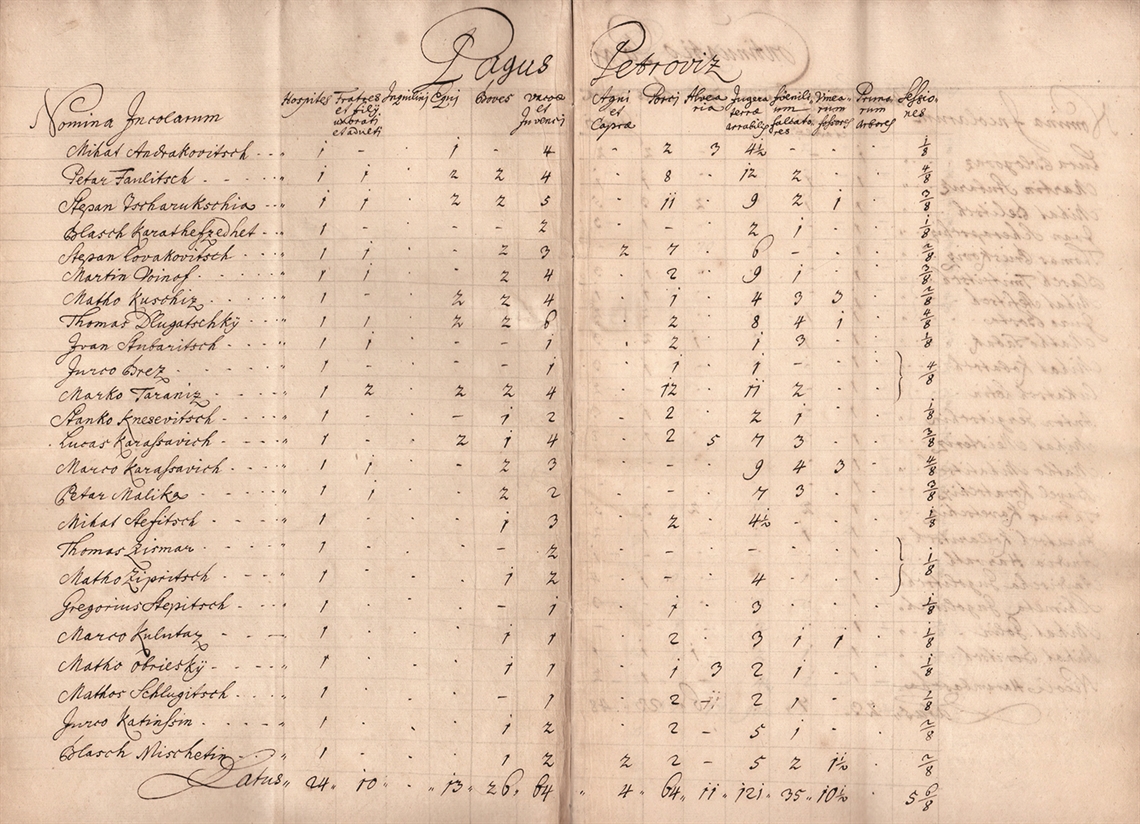 Pagus Petroviz
Nomina Incolarum Hospites Fratres et filij uxorati et adulti Inquilinj Equj Boves Vaccæ et Juvencj Agni et Capræ Porcj Alvearia Jugera terræ arrabilis Fœnilium falcatores Vinearum fossores Prunarum arbores Sessiones
Mihal Andrakovitsch - - " 1 · · 1 - 4 · - 2 3 4½ - - · 1/8
Petar Faulitsch - - - - " 1 1 · 2 2 4 · 8 · 12 2 · · 4/8
Stepan Tscharukschia " 1 1 · 2 2 5 · 11 · 9 2 1 · 3/8
Blasch Karathefzedhet - " 1 - · - - 2 · - · 2 1 · · 1/8
Stepan Lovakovitsch - - " 1 1 · · 2 3 2 7 · 6 - · · 2/8
Martin Voinof - - - - " 1 1 · · 2 4 · 2 · 9 1 · · 3/8
Matko Kuschiz - - - - " 1 - · 2 2 4 · 1 · 4 3 3 · 2/8
Thomas Dlugatschkÿ - - - " 1 1 · 2 2 6 · 2 · 8 4 1 · 4/8
Ivan Stubaritsch - - - - " 1 1 · · - 1 · 2 · 1 3 · · 1/8
Jurco Brez - - - - " 1 · · · - 1 · 1 · 1 - · ·
Marko Taraniz - - - - " 1 2 · 2 2 4 · 12 · 11 2 · · 4/8
Stanko Knesevitsch - - - " 1 - · - 1 2 · 2 · 2 1 · · 1/8
Lucas Karassavich - - - - " 1 · · 2 1 4 · 2 5 7 3 · · 3/8
Marco Karassavich - - - " 1 1 · - 2 3 · - · 9 4 3 · 4/8
Petar Malika - - - - " 1 1 · · 2 2 · - · 7 3 · · 3/8
Mihal Stefitsch - - - - " 1 · · · 1 3 · 2 · 4½ - · · 1/8
Thomas Zismar - - - - " 1 · · · - 2 · - · - - · ·
Matko Zipritsch - - - - " 1 · · · 1 2 · - · 4 - · · 1/8
Gregorius Stepitsch - - - " 1 · · · - 1 · 1 · 3 · · · 1/8
Marco Kulutaz - - - " 1 · · · 1 1 · 2 · 3 1 1 · 1/8
Matko Obrieskÿ - - - - " 1 · · · 1 1 · 1 3 2 1 · · 1/8
Mathos Schlugitsch - - - " 1 · · · - 1 · 2 - 2 1 · · 1/8
Jurco Katinssin - - - - " 1 · · · 1 2 · 2 - 5 1 · · 2/8
Blasch Mischetin - - - " 1 · · · 1 2 2 2 - 5 2 1½ · 2/8
Latus " 24 " 10 " · " 13 " 26 " 64 " 4 " 64 " 11 " 121 " 35 " 10½ · 5 6/8